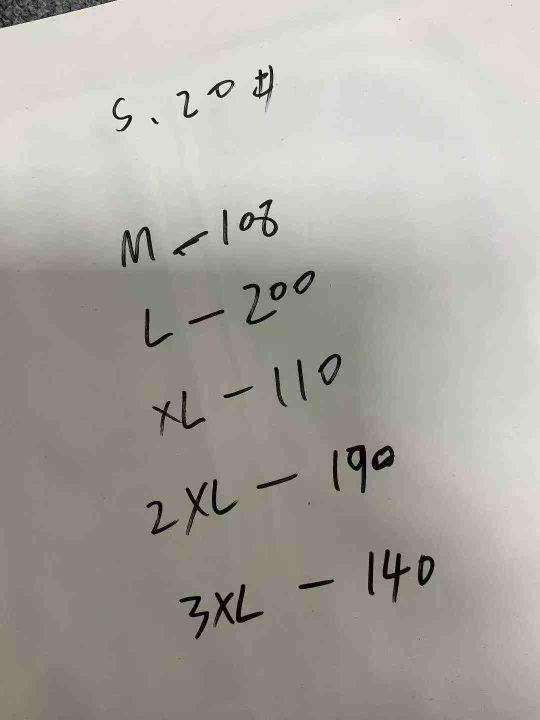 5.20#
M-108
L-200
XL-110
2XL-190
3XL-140